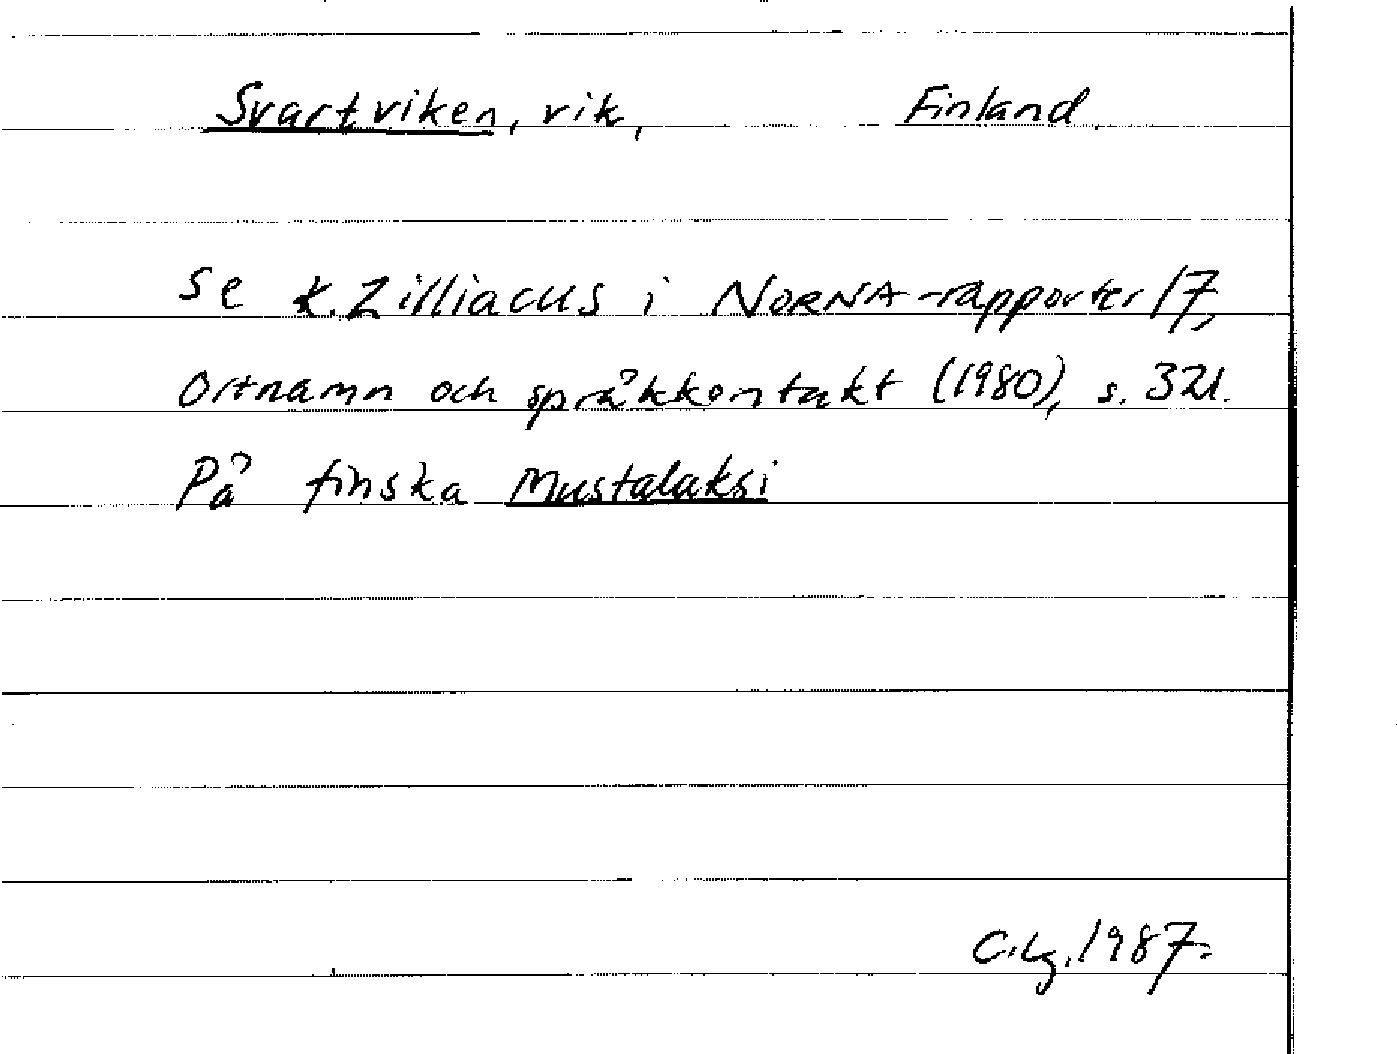 Svartviken, vik, Finland.
Se K. Zilliacus i NORNA-rapporter 17,
Ortnamn och språkkontakt (1980), s. 321.
På finska Mustalaksi
C.Lg. 1987.